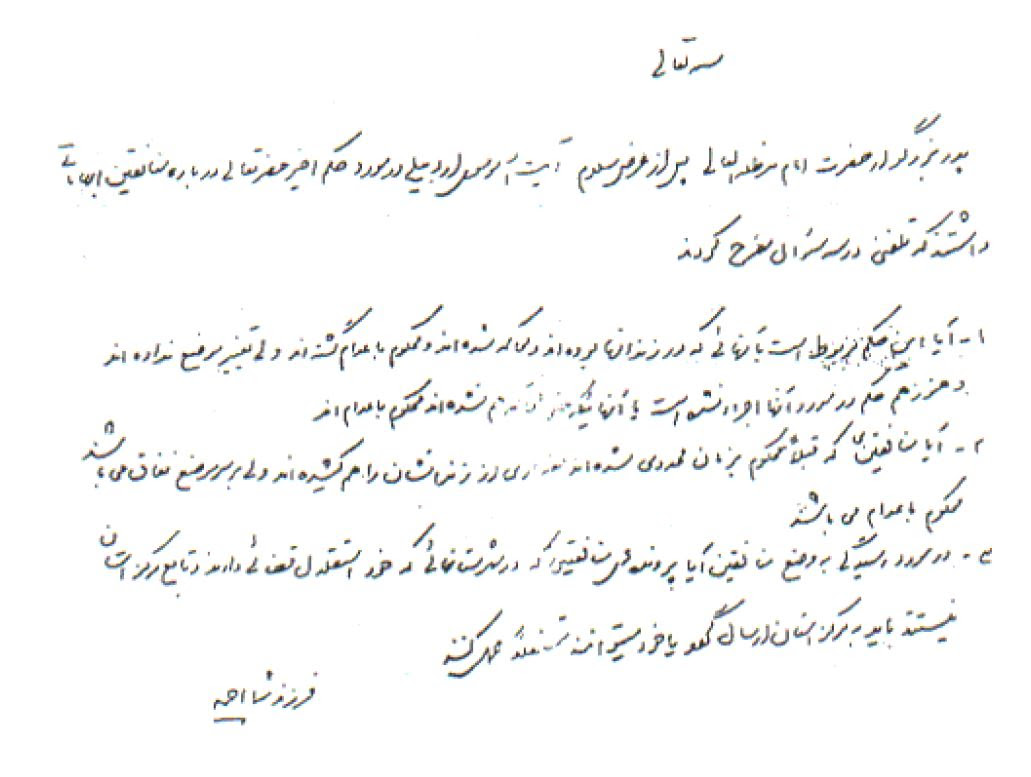 بسمه تعالی
پدر بزرگوار حضرت امام مدظله العالی پس از عرض سلام آیت اله موسوی اردبیلی در مورد حکم اخیر حضرتعالی درباره منافقین ابهاماتی
داشتند که تلفنی در سه سئوال مطرح کردند
۱ - آیا این حکم مربوط است بآنهائی که در زندانها بوده‌اند و محاکمه شده‌اند و محکوم باعدام گشته‌اند ولی تغییر موضع نداده‌اند
و هنوز هم حکم در مورد آنها اجراء نشده است یا آنهائیکه حتی محاکمه هم نشده‌اند محکوم باعدام‌اند
۲ - آیا منافقینی که قبلاً محکوم بزندان محدودی شده‌اند و مقداری از زندانشان را هم کشیده‌اند ولی بر سر موضع نفاق می‌باشند
محکوم باعدام می‌باشند
۳ - در مورد رسیدگی به وضع منافقین آیا پرونده‌های منافقینی که در شهرستانهائی که خود استقلال قضائی دارند و تابع مرکز استان
نیستند باید به مرکز استان ارسال گردد یا خود میتوانند مستقلاً عمل کنند
فرزند شما احمد